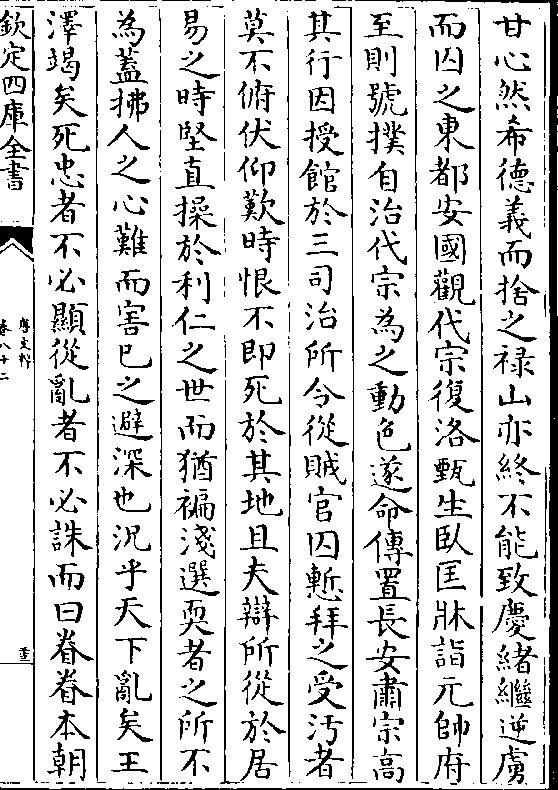 甘心然希德義而捨之禄山亦終不能致慶緒繼逆虜
而囚之東都安國觀代宗復洛甄生臥匡牀詣元帥府
至則號撲自治代宗為之動色遂命傳置長安肅宗高
其行因授館於三司治所令從賊官囚慙拜之受汚者
莫不俯伏仰歎時恨不即死於其地且夫辯所從於居
易之時堅直操於利仁之世而猶褊淺選耎者之所不
為蓋拂人之心難而害已之避深也況乎天下亂矣王
澤竭矣死忠者不必顯從亂者不必誅而曰眷眷本朝
欽定四庫全書
唐文粹
卷八十二